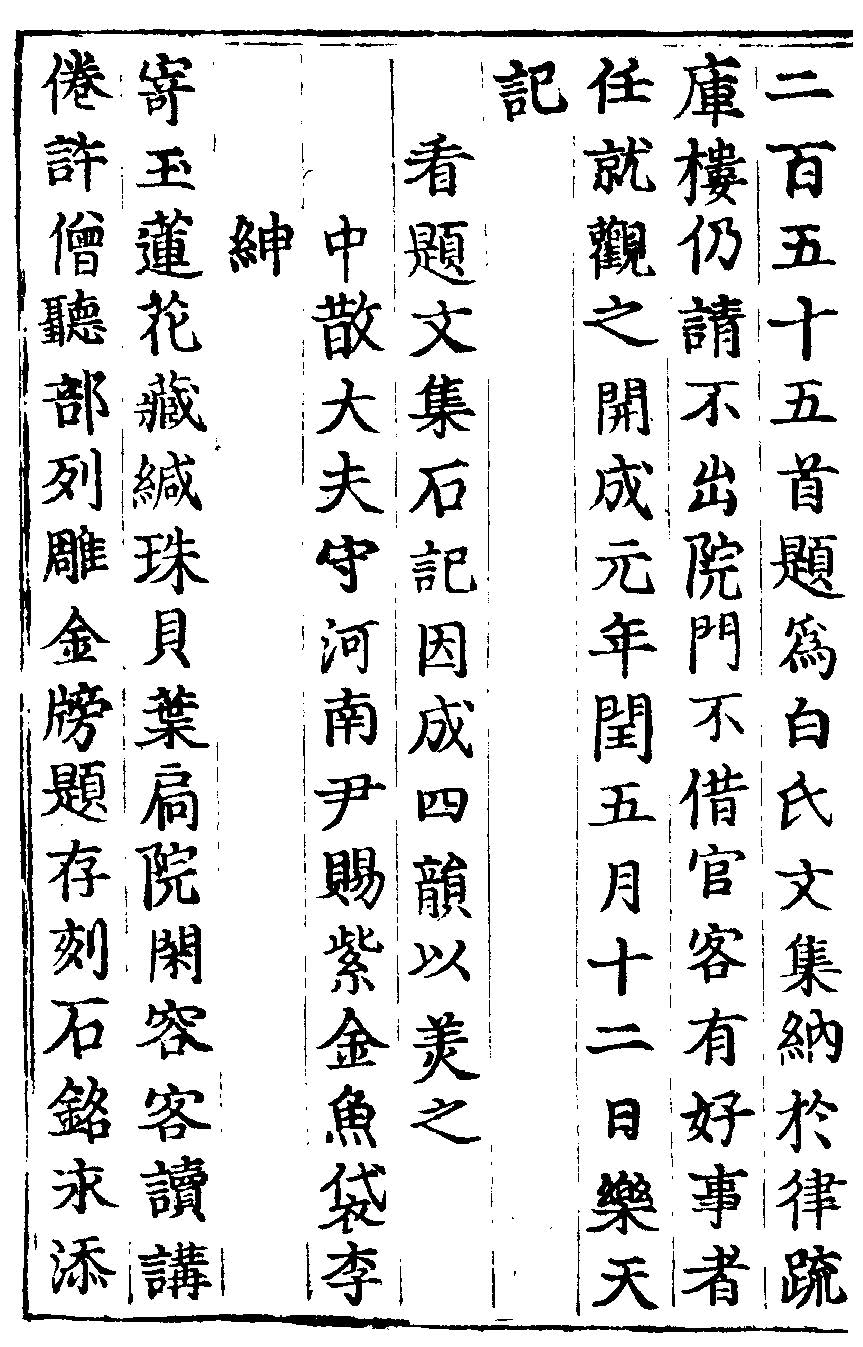 二百五十五首題爲白氏文集納於律疏
庫樓仍請不出院門不借官客有好事者
任就觀之開成元年閏五月十二日樂天
記
看題文集石記因成四韻以羙之
中散大夫守河南尹賜紫金魚袋李
紳
寄玉蓮花藏緘珠貝葉扄院閑容客讀講
倦許僧聽部列雕金牓題存刻石銘永添